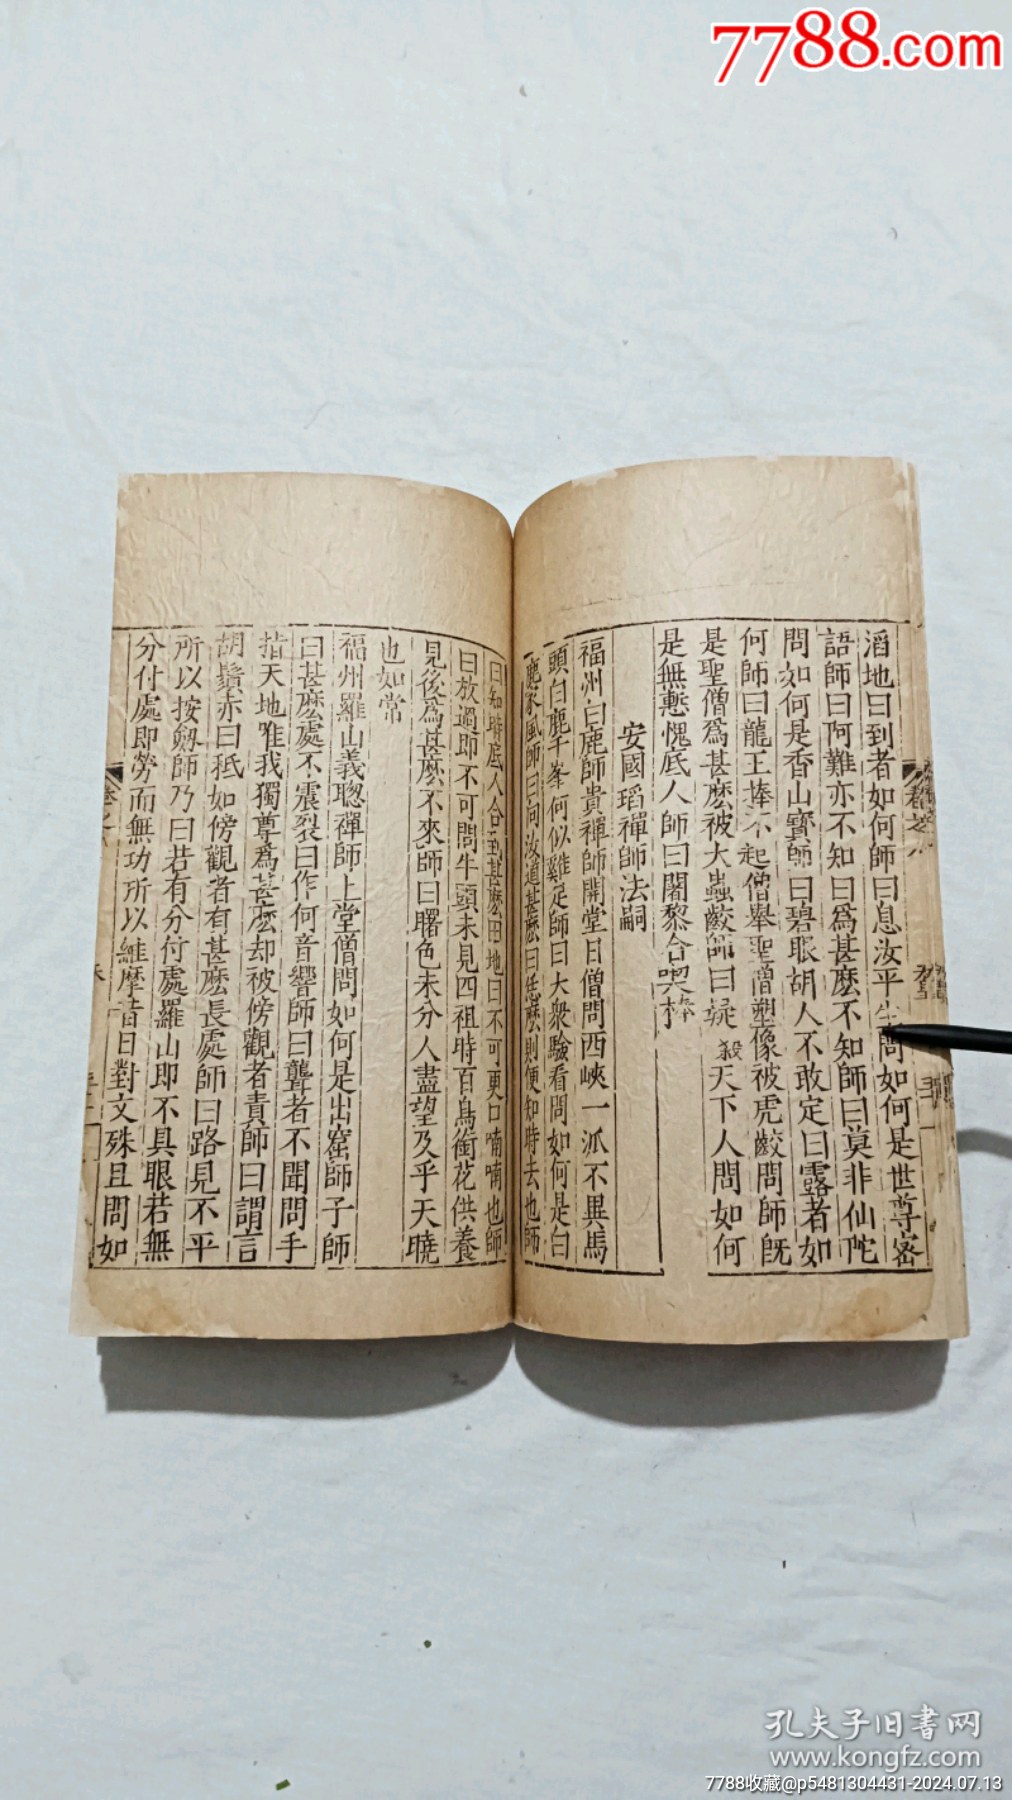 7788.com
滔地曰到者如何師曰息汝平生問如何是世尊密
語師曰阿難亦不知曰爲甚麽不知師曰莫非仙陀
問如何是香山寶師曰碧眼胡人不敢定曰露者如
何師曰龍王捧不起僧舉聖僧塑像被虎齩問師旣
是聖僧爲甚麽被大蟲齩師曰疑殺天下人問如何
是無慙愧底人師曰闍黎合喫棒
安國瑫禪師法嗣
福州白鹿師貴禪師開堂日僧問西峽一派不異馬
頭白鹿千峯何似雞足師曰大衆驗看問如何是白
鹿家風師曰向汝道甚麽曰恁麽則便知時去也師
曰知時底人合到甚麽田地曰不可更口喃喃也師
曰放過即不可問牛頭未見四祖時百鳥銜花供養
見後爲甚麽不來師曰曙色未分人盡望及乎天曉
也如常
福州羅山義聰禪師上堂僧問如何是出窟師子師
曰甚麽處不震裂曰作何音響師曰聾者不聞問手
指天地唯我獨尊爲甚麽却被傍觀者責師曰謂言
胡鬚赤曰秖如傍觀者有甚麽長處師曰路見不平
所以按劒師乃曰若有分付處羅山即不具眼若無
分付處即勞而無功所以維摩昔日對文殊且問如
孔夫子旧書网
www.kongfz.com
7788收藏@p5481304431-2024.07.13